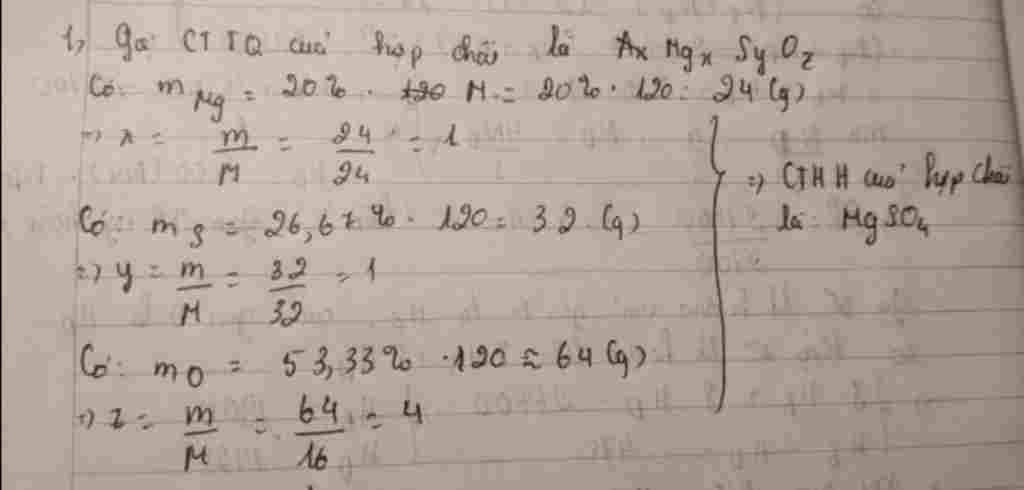 1, Gọi CTTQ của hợp chất là MgxSyOz
Có: mMg = 20% . M = 20% . 120 = 24 (g)
=> x = m/M = 24/24 = 1
Có: mS = 26,67% . 120 = 32 (g)
=> y = m/M = 32/32 = 1
Có: mO = 53,33% . 120 ≈ 64 (g)
=> z = m/M = 64/16 = 4
=> CTHH của hợp chất
là: MgSO4